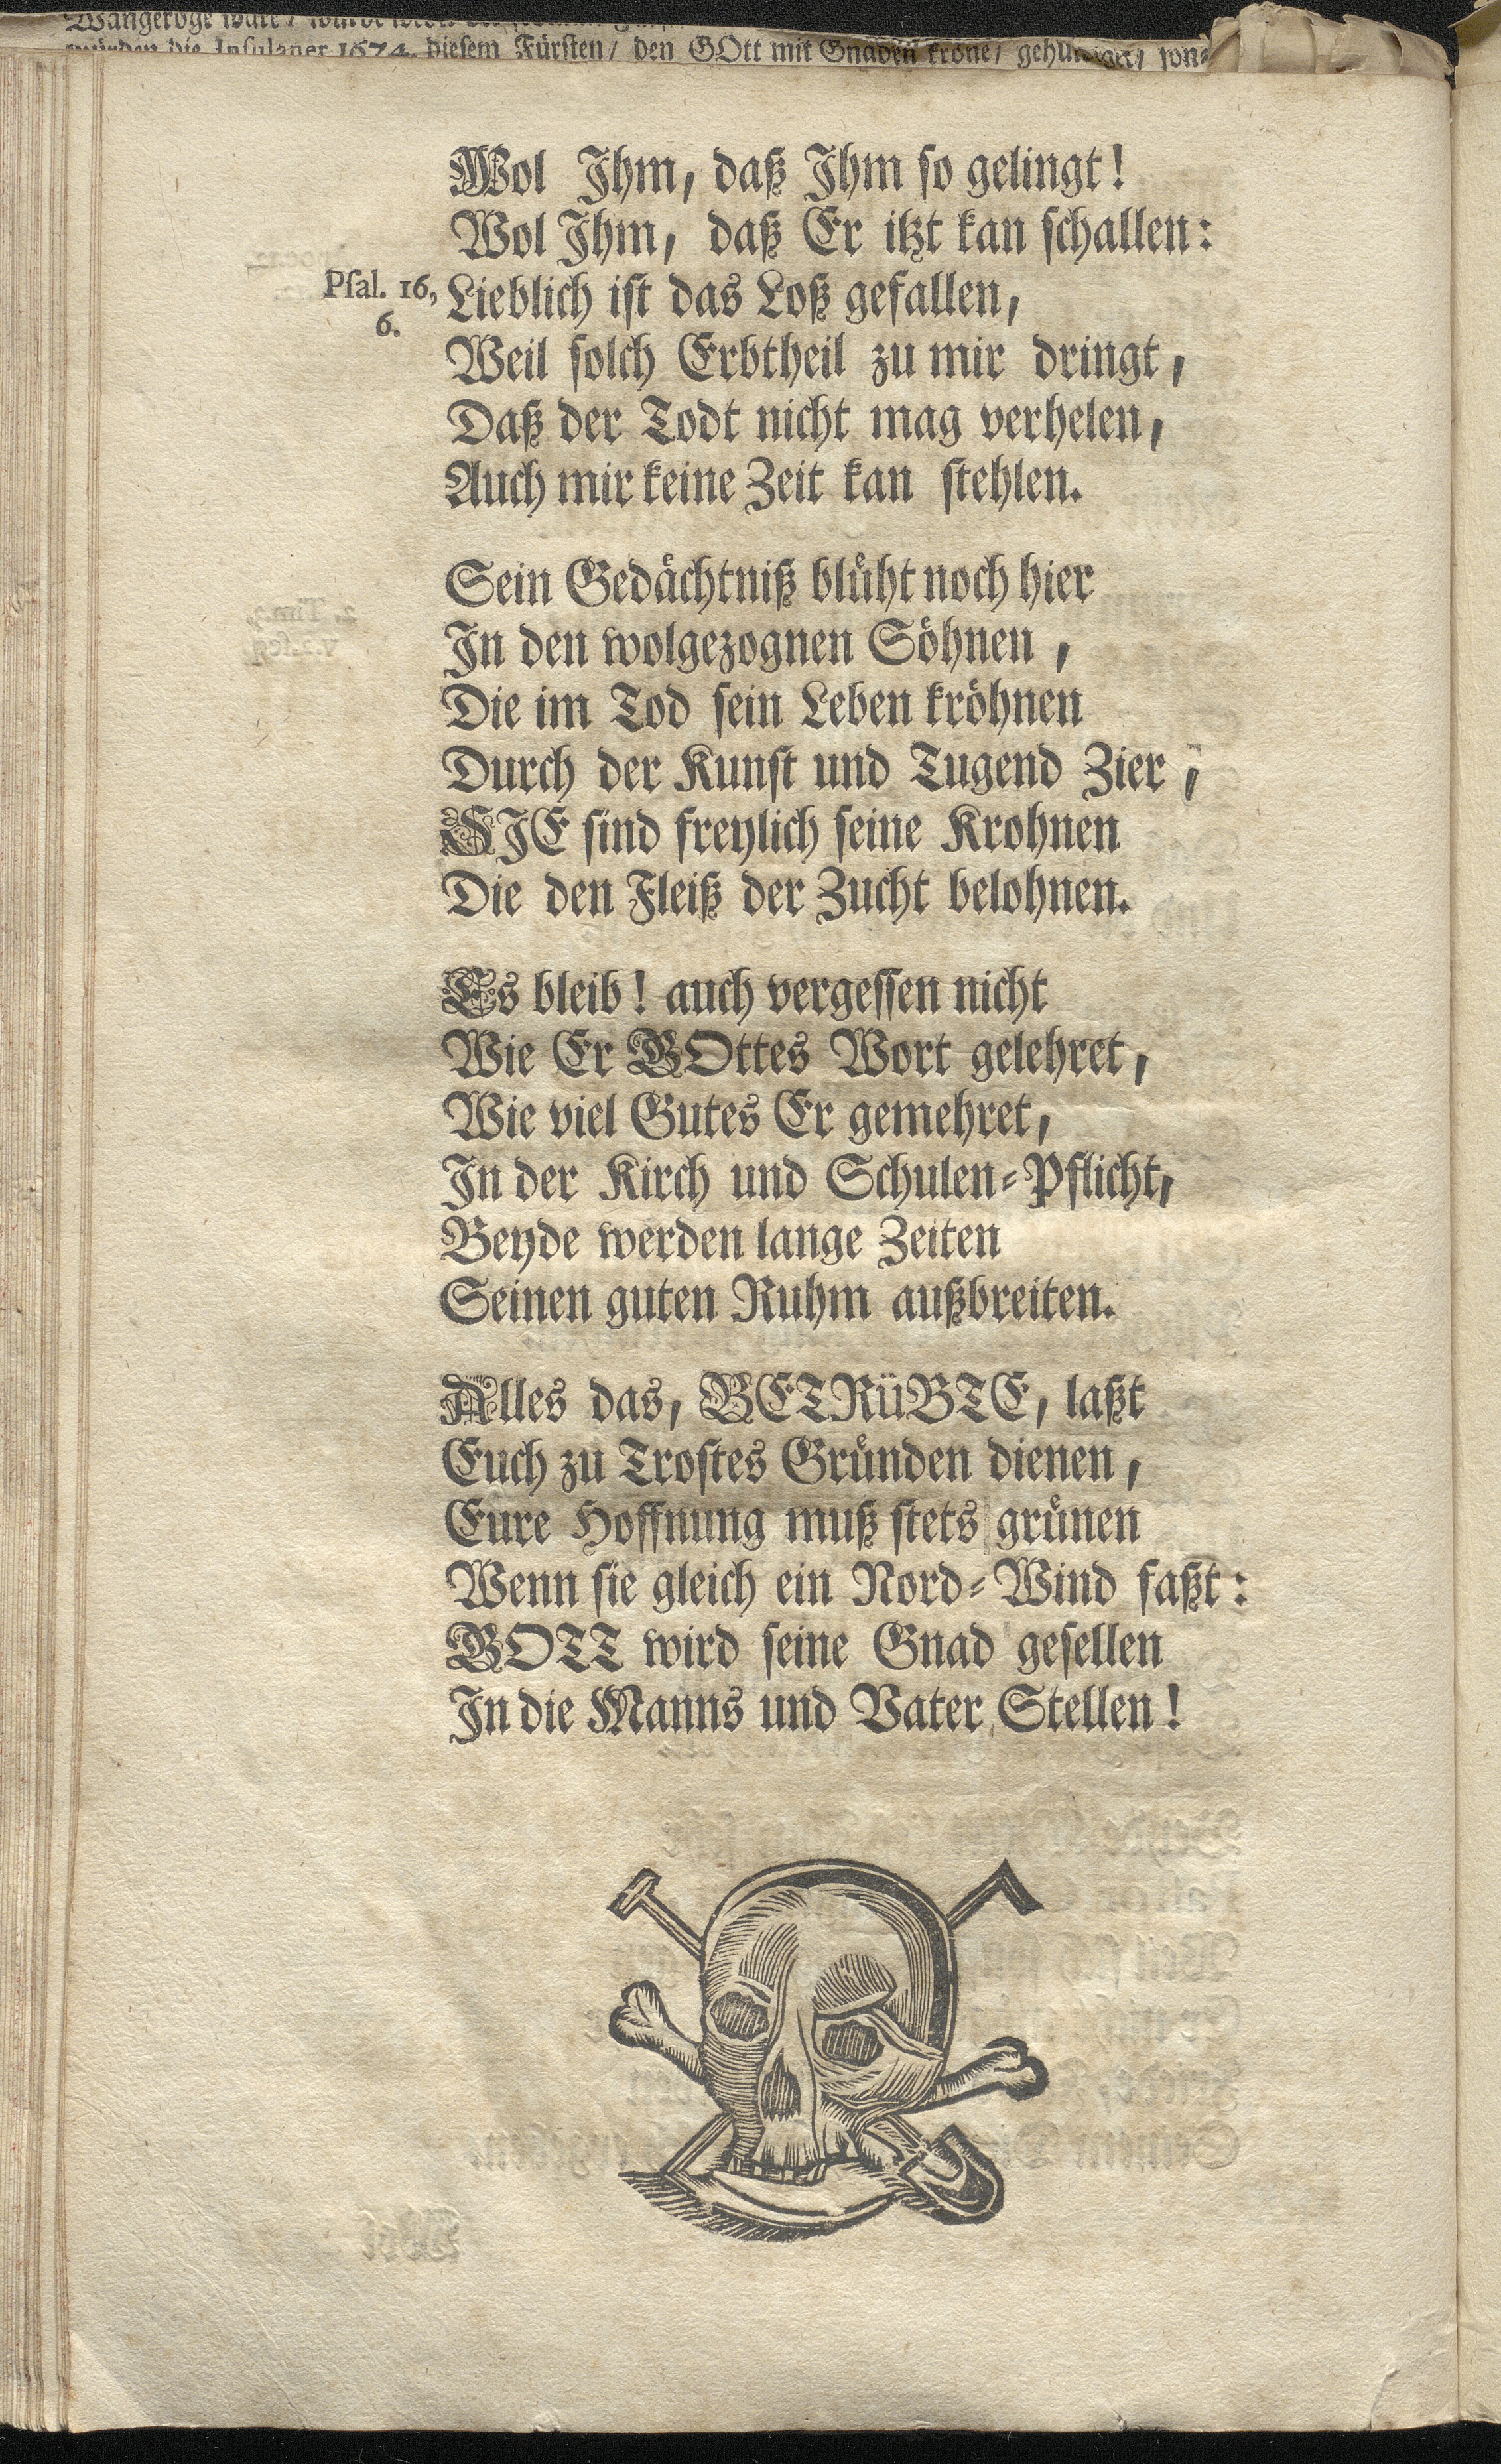 würden die Insulaner 1674. diesem Fürsten/ den GOtt mit Gnaden kröne/
Wol Ihm, daß Ihm so gelingt!
Wol Ihm, daß Er itzt kan schallen:
Psal. 16, 6.
Lieblich ist das Loß gefallen,
Weil solch Erbtheil zu mir dringt,
Daß der Todt nicht mag verhelen,
Auch mir keine Zeit kan stehlen.
Sein Gedächtniß blüht noch hier
In den wolgezognen Söhnen,
Die im Tod sein Leben kröhnen
Durch der Kunst und Tugend Zier,
SIE sind freylich seine Krohnen
Die den Fleiß der Zucht belohnen.
Es bleib! auch vergessen nicht
Wie Er GOttes Wort gelehret,
Wie viel Gutes Er gemehret,
In der Kirch und Schulen-Pflicht,
Beyde werden lange Zeiten
Seinen guten Ruhm außbreiten.
Alles das, BETRüBTE, laßt
Euch zu Trostes Gründen dienen,
Eure Hoffnung muß stets grünen
Wenn sie gleich ein Nord-Wind faßt:
GOTT wird seine Gnad gesellen
In die Manns und Vater Stellen!